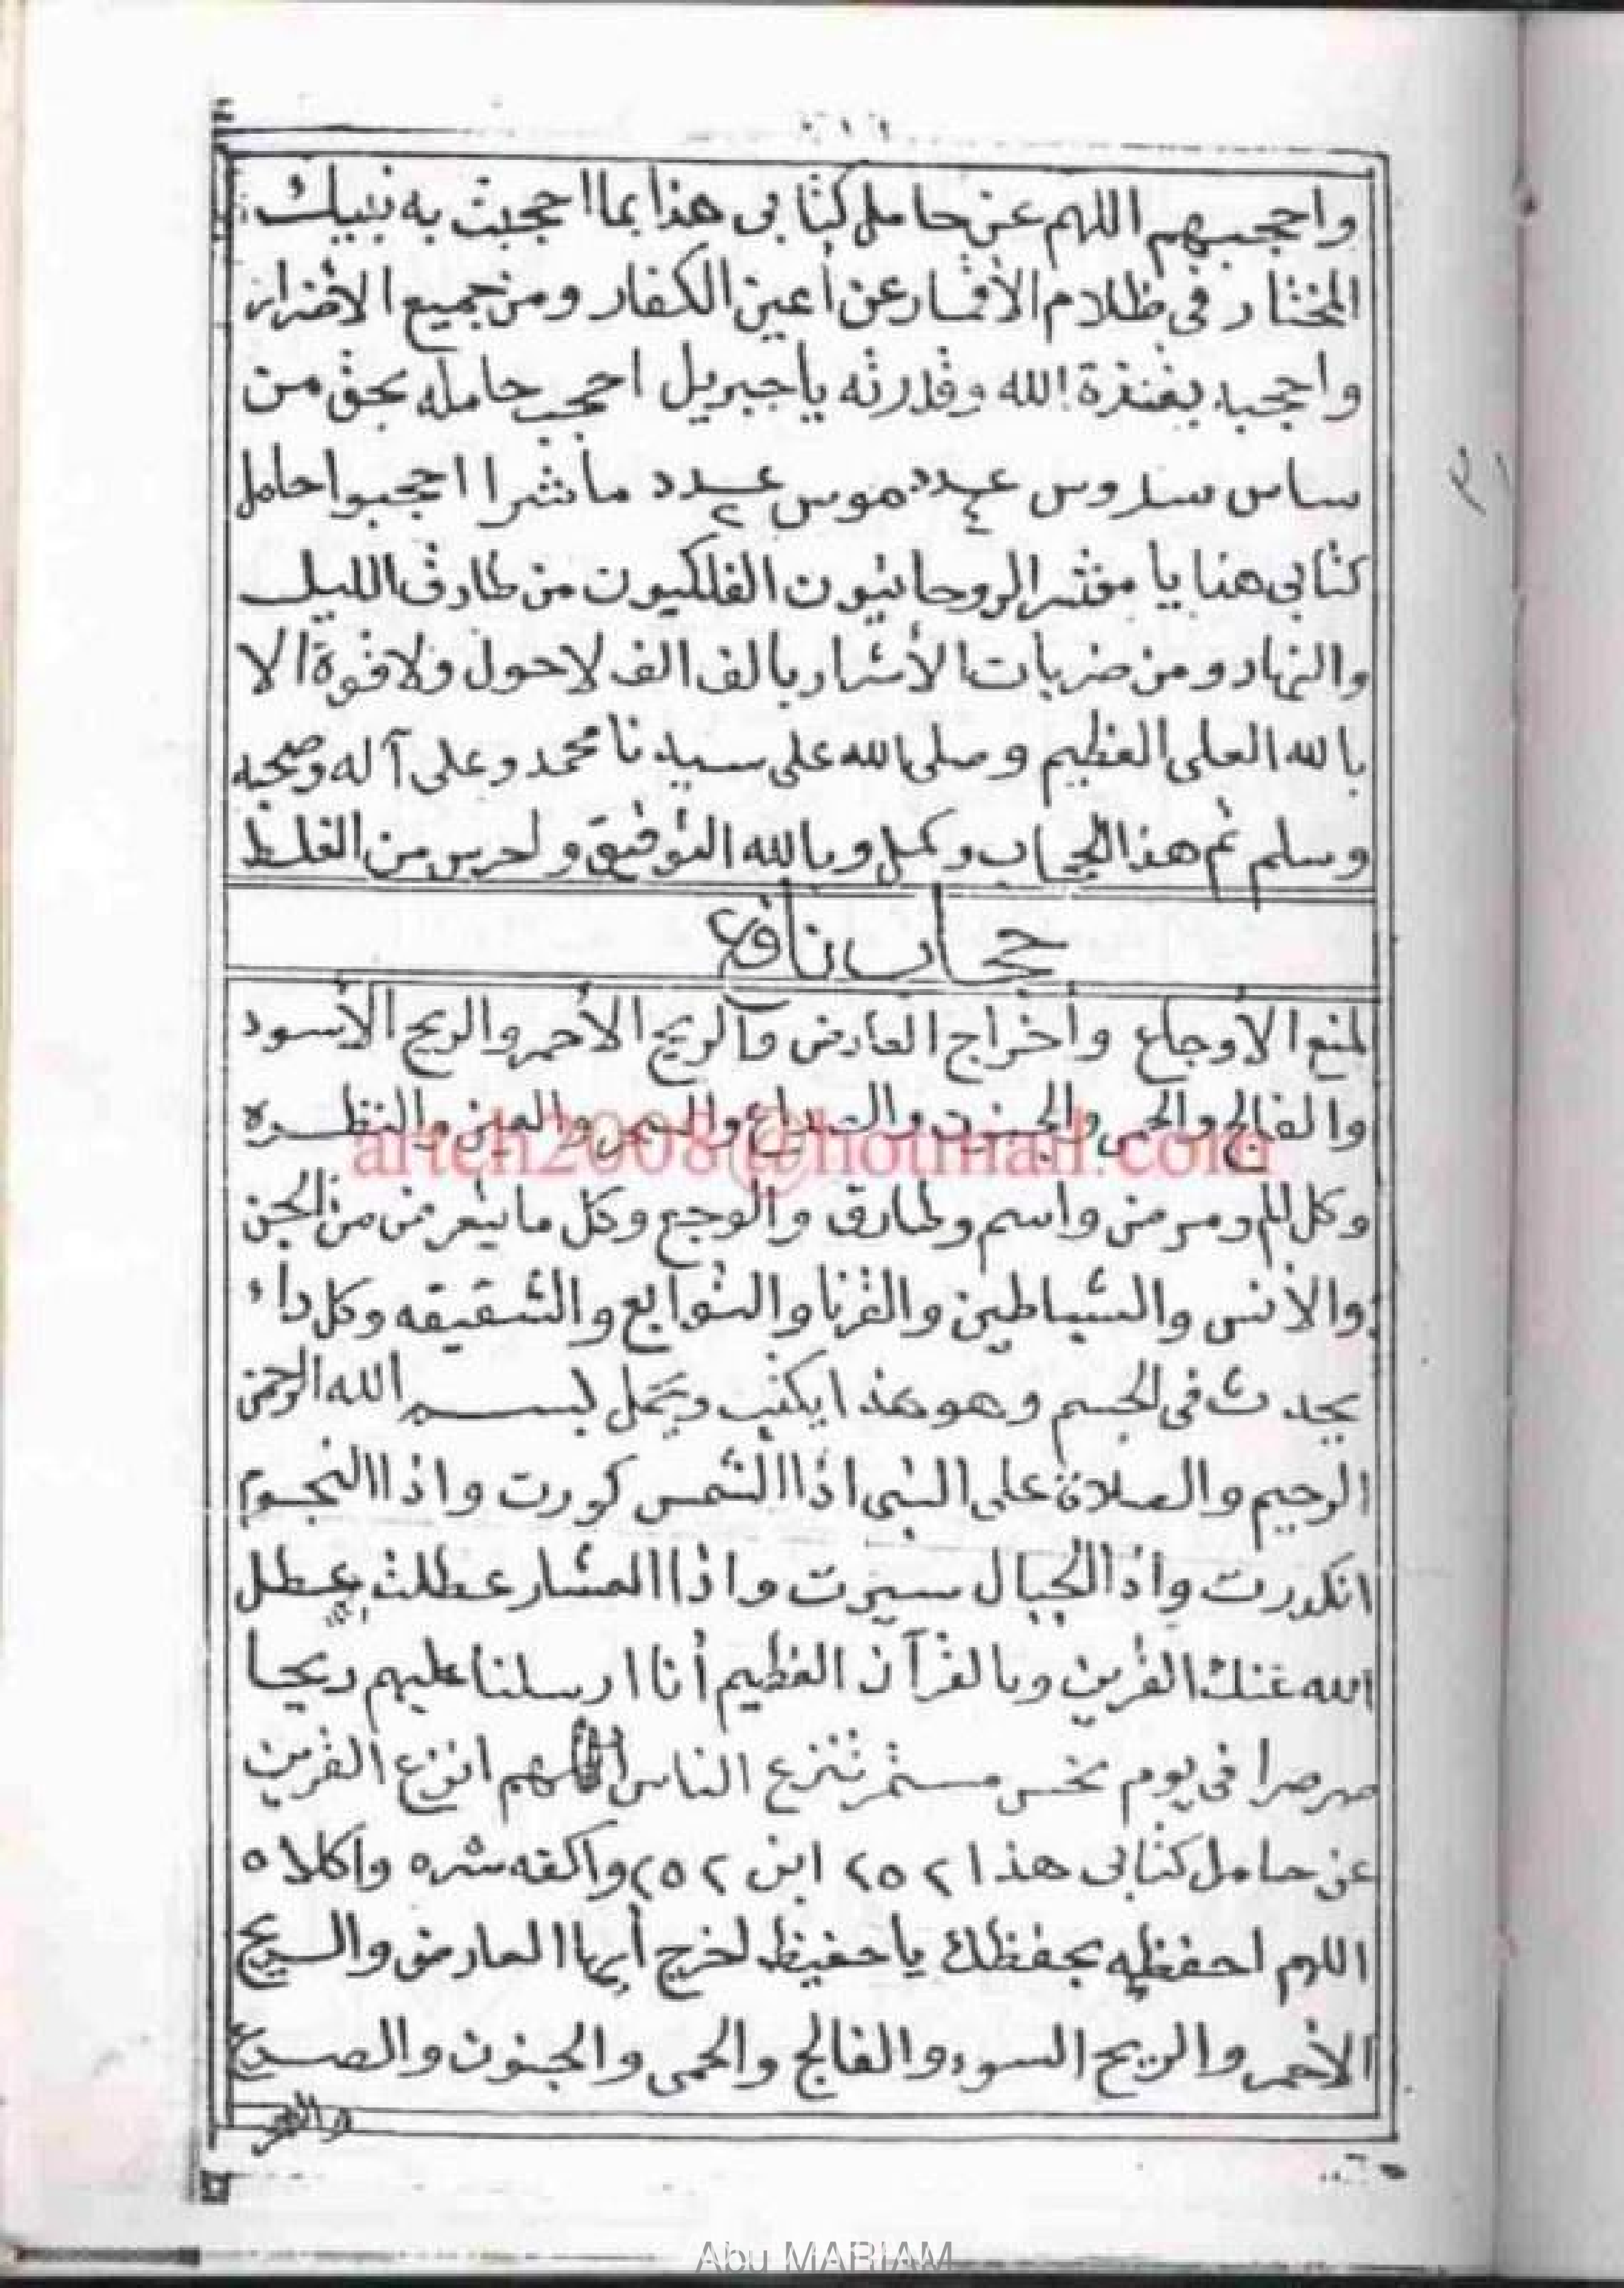 واحجبهم اللهم عن حامل كتابى هذا بما احجبت به نبيك
المختار فى ظلام الأقمار عن أعين الكفار ومن جميع الأضرار
واحجبه بقدرة الله وقدرته يا جبريل احجب حامله بحق من
ساس سدوس عدد ٤ موس عدد ٢ ما نشرا احجبوا حامل
كتابى هذا يا معشر الروحانيون الفلكيون من طارق الليل
والنهار ومن ضربات الأشرار بالف الف لاحول ولا قوة الا
بالله العلى العظيم وصلى الله على سيدنا محمد وعلى آله وصحبه
وسلم تم هذا الحجاب وكمل وبالله التوفيق ولحرس من الغلط
حجاب نافع
لمنع الأوجاع وأخراج العارض والريح الأحمر والريح الأسود
والفالج والحمى والجنون والصداع والسحر والعين والنظره
وكل الم ومرض واسم وطارق والوجع وكل ما يتعرض من الجن
والأنس والشياطين والقرنا والتوابع والشقيقه وكل داء
يحدث فى الجسم وهو هذا يكتب ويحمل بسم الله الرحمن
الرحيم والصلاة على النبى اذا الشمس كورت واذا النجوم
انكدرت واذا الجبال سيرت واذا العشار عطلت عطل
الله عنك القرين وبالقرآن العظيم أنا ارسلنا عليهم ريحا
صرصرا فى يوم نحس مستمر تنزع الناس اللهم انزع القرين
عن حامل كتابى هذا ٢٥٢ ابن ٢٥٢ واكفه شره واكلاه
اللهم احفظه بحفظك يا حفيظ اخرج أيها العارض والريح
الأحمر والريح السوء والفالج والحمى والجنون والصدع
والسحر
٣١
arteh2008@hotmail.com
Abu MARIAM